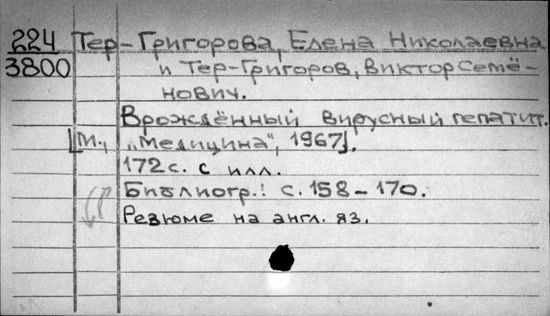 224 Тер-Григорова, Елена Николаевна
3800 и Тер-Григоров, Виктор Семё-
нович.
Врождённый вирусный гепатит.
[М., „Медицина", 1967].
172 с. с илл.
Библиогр.: с. 158-170.
Резюме на англ. яз.